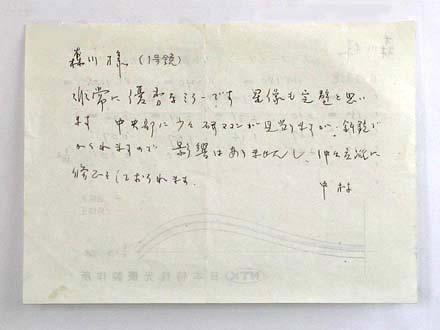 森川様 (1号鏡)
非常に優秀なミラーです 星像も完璧と思い
ます 中央部に少々研マコンが見当りますが、斜鏡で
かくれますので 影響はありませんし、仲々意識に
修正しておられます.
中村
NTK 日本特殊光機製作所